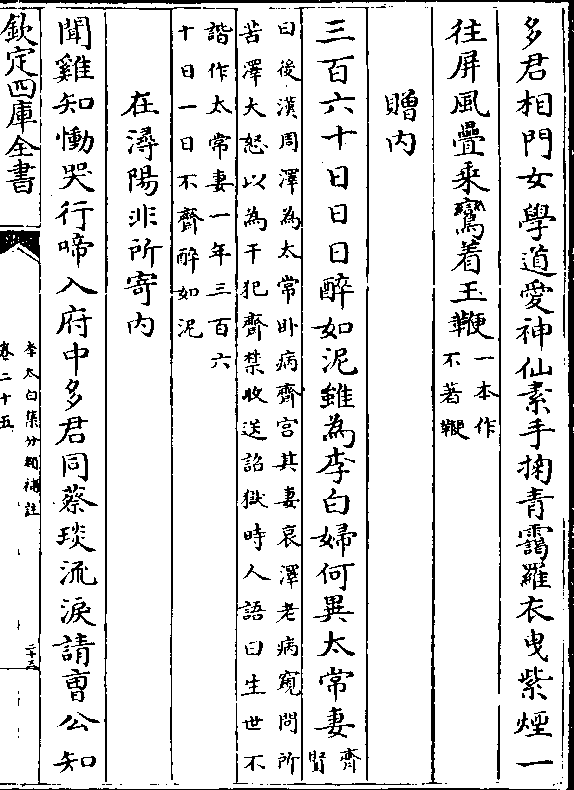 多君相門女學道愛神仙素手掬青靄羅衣曳紫煙一
往屏風疊乘鸞着玉鞭一本作
不著鞭
贈内
三百六十日日日醉如泥雖為李白婦何異太常妻齊
賢
曰後漢周澤為太常卧病齊宮其妻哀澤老病窺問所
苦澤大怒以為干犯齊禁收送詔獄時人語曰生世不
諧作太常妻一年三百六
十日一日不齊醉如泥
在潯陽非所寄内
聞雞知慟哭行啼入府中多君同蔡琰流淚請曹公知
欽定四庫全書
李太白集分類補註
卷二十五
二十三